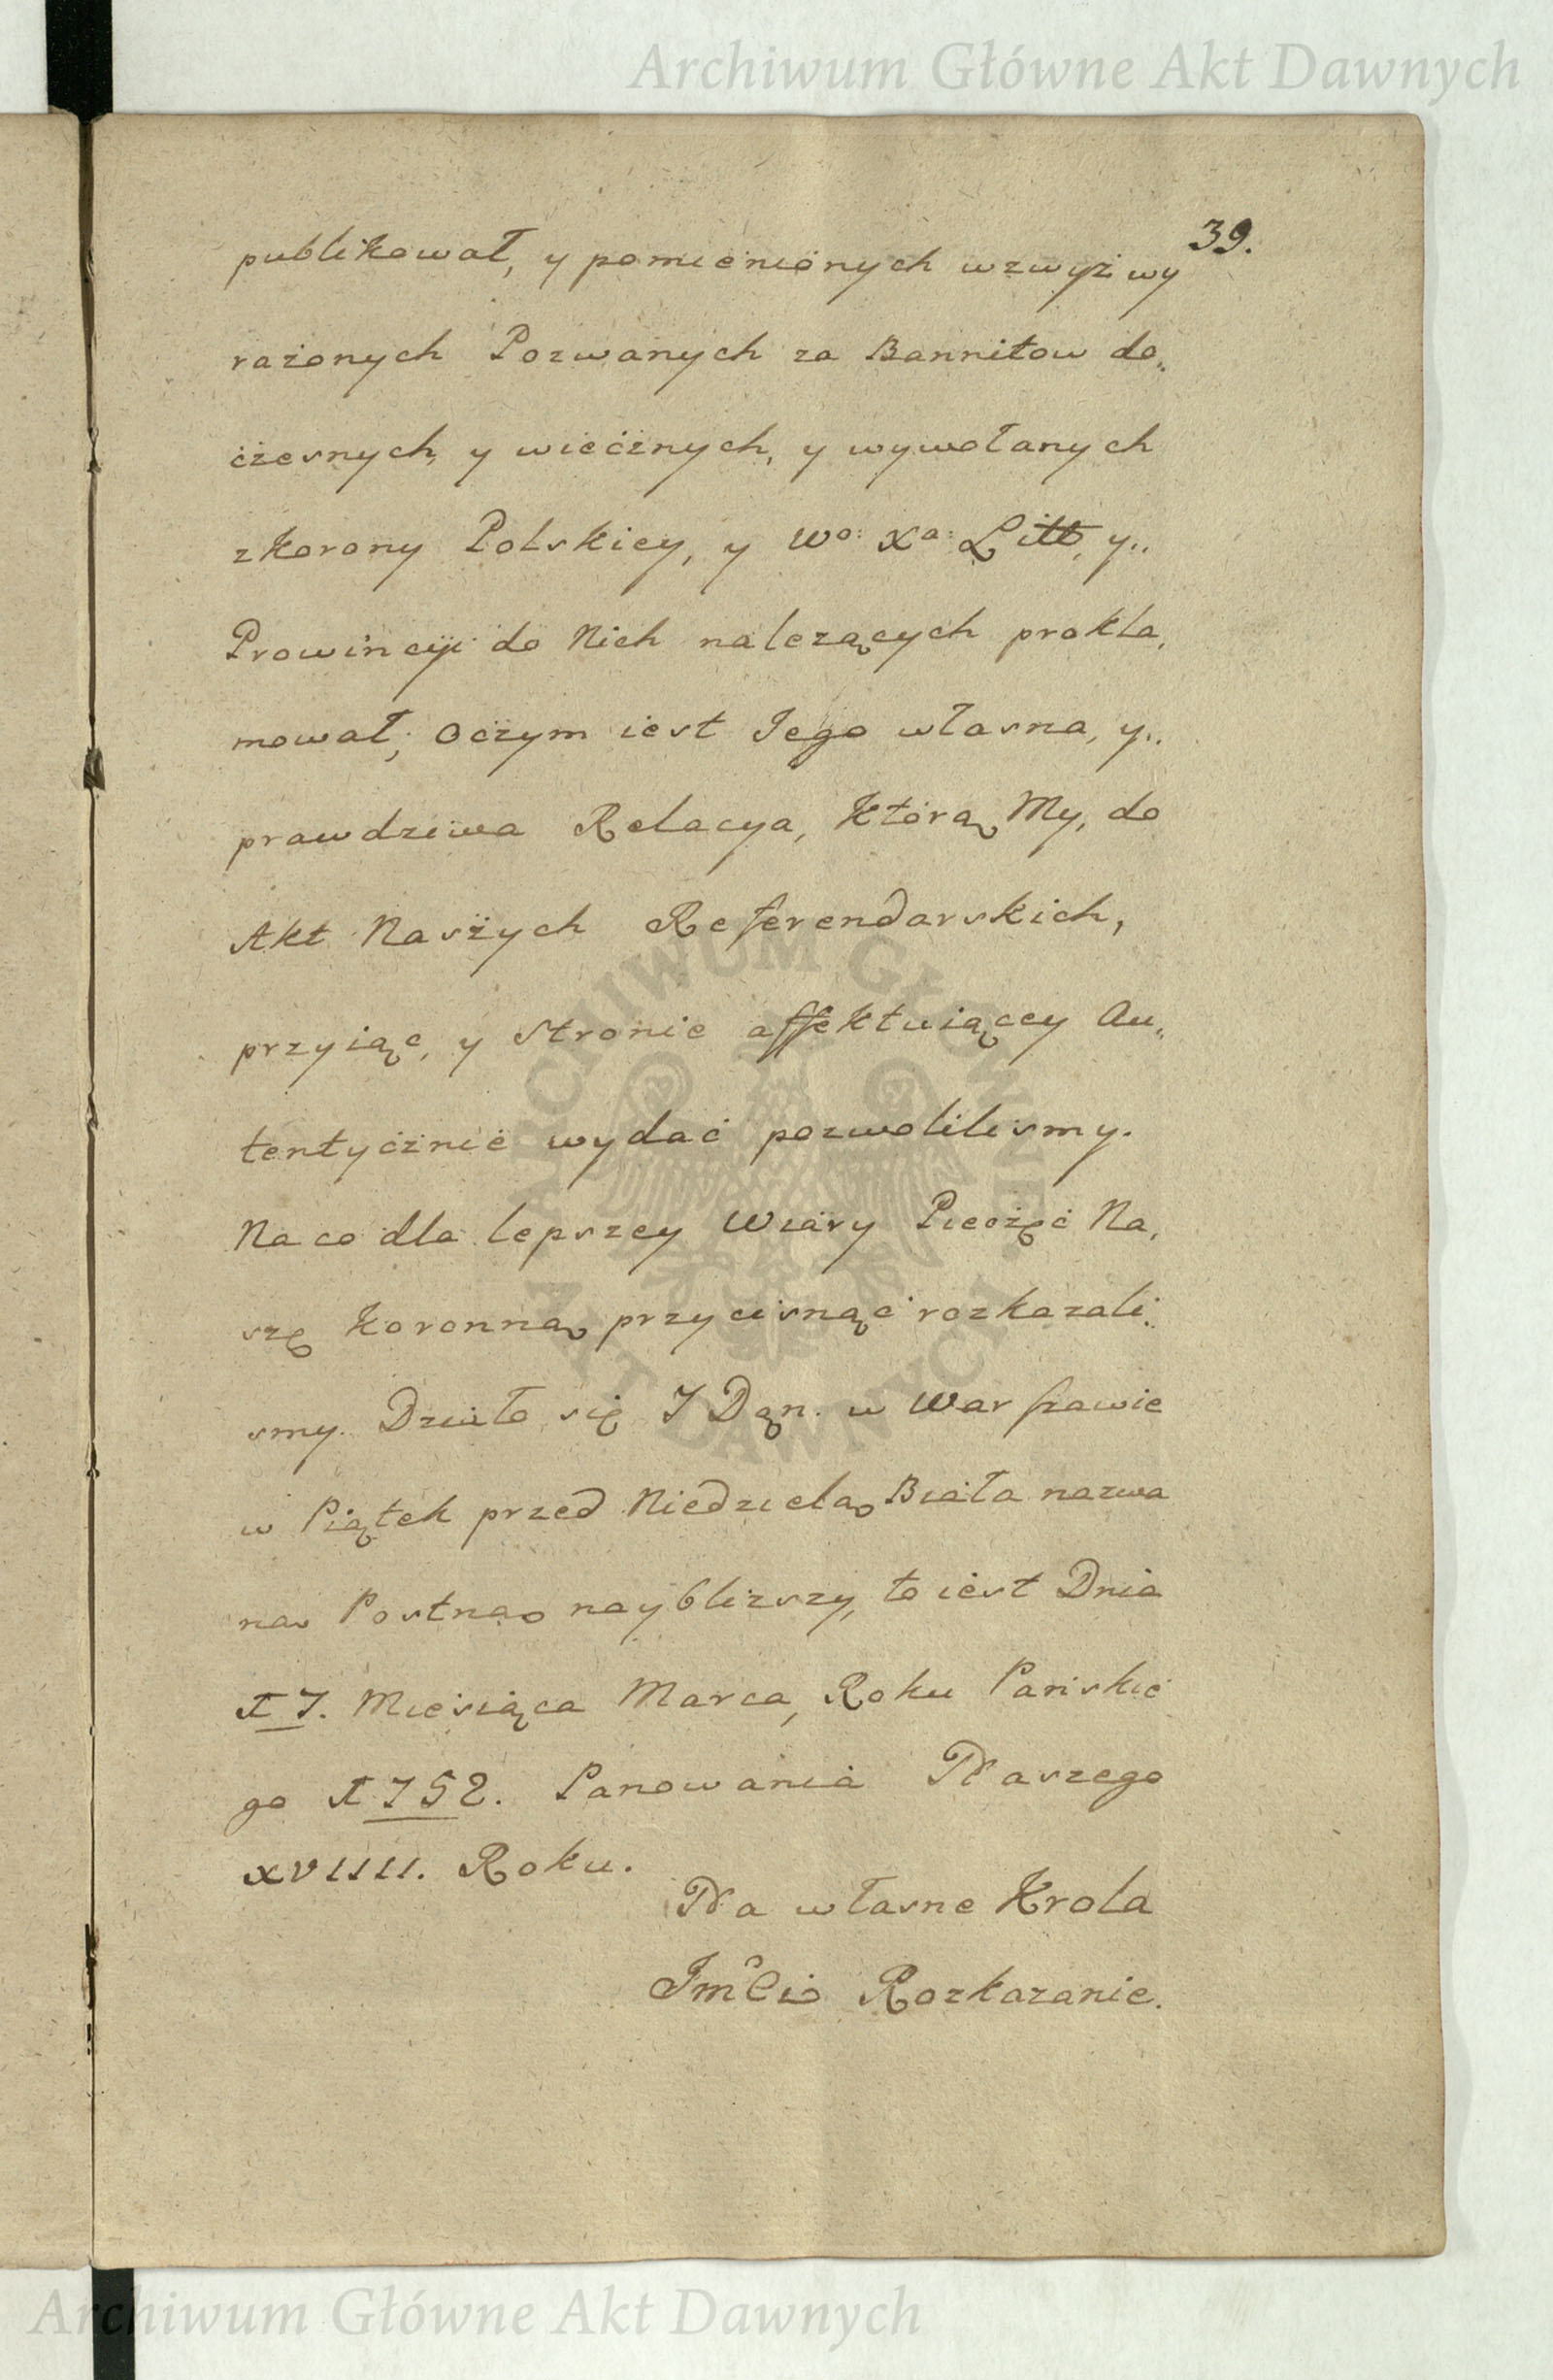 Archiwum Główne Akt Dawnych
39.
publikował, y pomienionych wzwyż wy
rażonych Pozwanych za Bannitow do„
czesnych, y wiecznych, y wywołanych
z Korony Polskiey, y Wo: Xa: Litt, y„
Prowincyi do Nich należących prokla„
mował, Oczym iest Jego własna, y„
prawdziwa Relacya, Którą My, do
Akt Naszych Referendarskich,
przyiąc, y Stronie affektuiącey Au„
tentycznie wydać pozwolilismy.
Na co dla lepszey Wiary Pieczęć Na„
szę Koronną przycisnąć rozkazali„
smy. Działo się J Dąn. w Warszawie
w Piątek przed Niedzielą Biała nazwa
ną Postną naybliższy, to iest Dnia
17. Miesiąca Marca, Roku Pańskie
go 1752. Panowania Naszego
XVIIII. Roku.
Na własne Krola
Jmci Rozkazanie.
ARCHIWUM GŁÓWNE
AKT DAWNYCH
Archiwum Główne Akt Dawnych